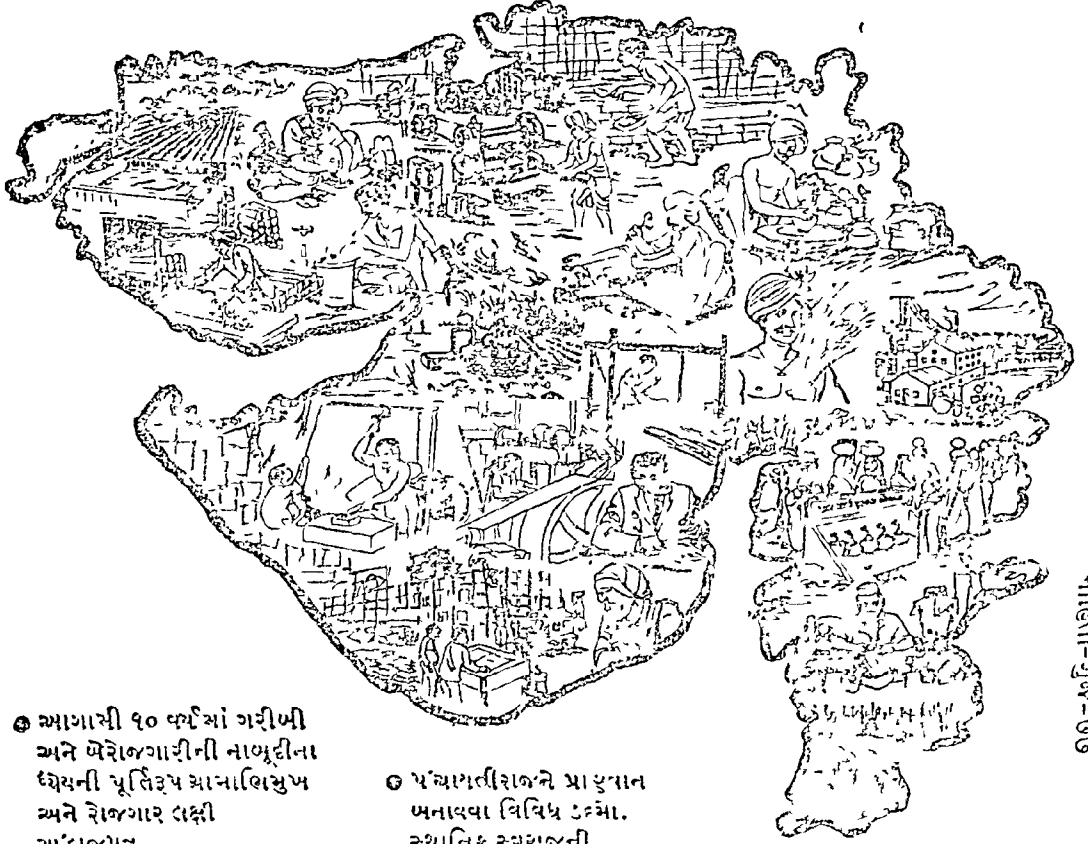 આગામી ૧૦ વર્ષમાં ગરીબી
અને બેરોજગારીની નાબૂદીના
ધ્યેયની પૂર્તિરૂપ ગ્રામાભિમુખ
અને રોજગાર લક્ષી
અંદાજપત્ર
પંચાયતીરાજને પ્રાણવાન
બનાવવા વિવિધ કદમો.
સ્થાનિક સ્વરાજની